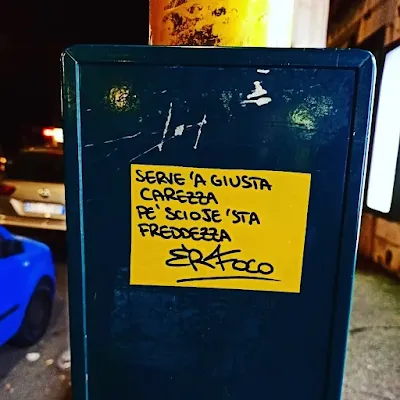 SERVE 'A GIUSTA
CAREZZA
PE' SCIOJE 'STA
FREDDEZZA
ER FOCO